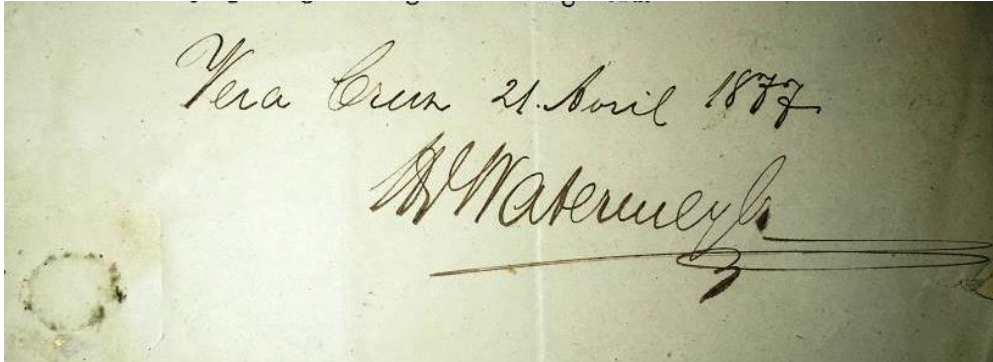 Vera Cruz 21. Avril 1877
Watermeyer